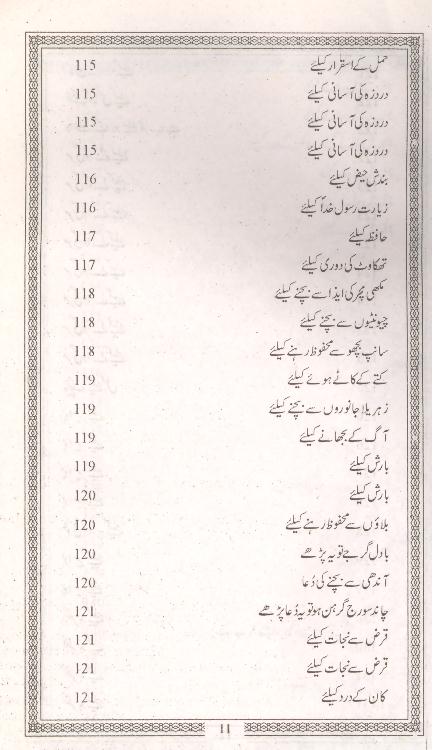 حمل کے استقرار کیلئے 115
دردِزہ کی آسانی کیلئے 115
دردِزہ کی آسانی کیلئے 115
دردِزہ کی آسانی کیلئے 115
بندش حیض کیلئے 116
زیارت رسول خداؐ کیلئے 116
حافظہ کیلئے 117
تھکاوٹ کی دوری کیلئے 117
مکھی مچھر کی ایذا سے بچنے کیلئے 118
چیونٹیوں سے بچنے کیلئے 118
سانپ بچھو سے محفوظ رہنے کیلئے 118
کتے کے کاٹے ہوئے کیلئے 119
زہریلا جانوروں سے بچنے کیلئے 119
آگ کے بجھانے کیلئے 119
بارش کیلئے 119
بارش کیلئے 120
بلاؤں سے محفوظ رہنے کیلئے 120
بادل گرجے تو یہ پڑھے 120
آندھی سے بچنے کی دُعا 120
چاند سورج گرہن ہو تو یہ دُعا پڑھے 121
قرض سے نجات کیلئے 121
قرض سے نجات کیلئے 121
کان کے درد کیلئے 121
11